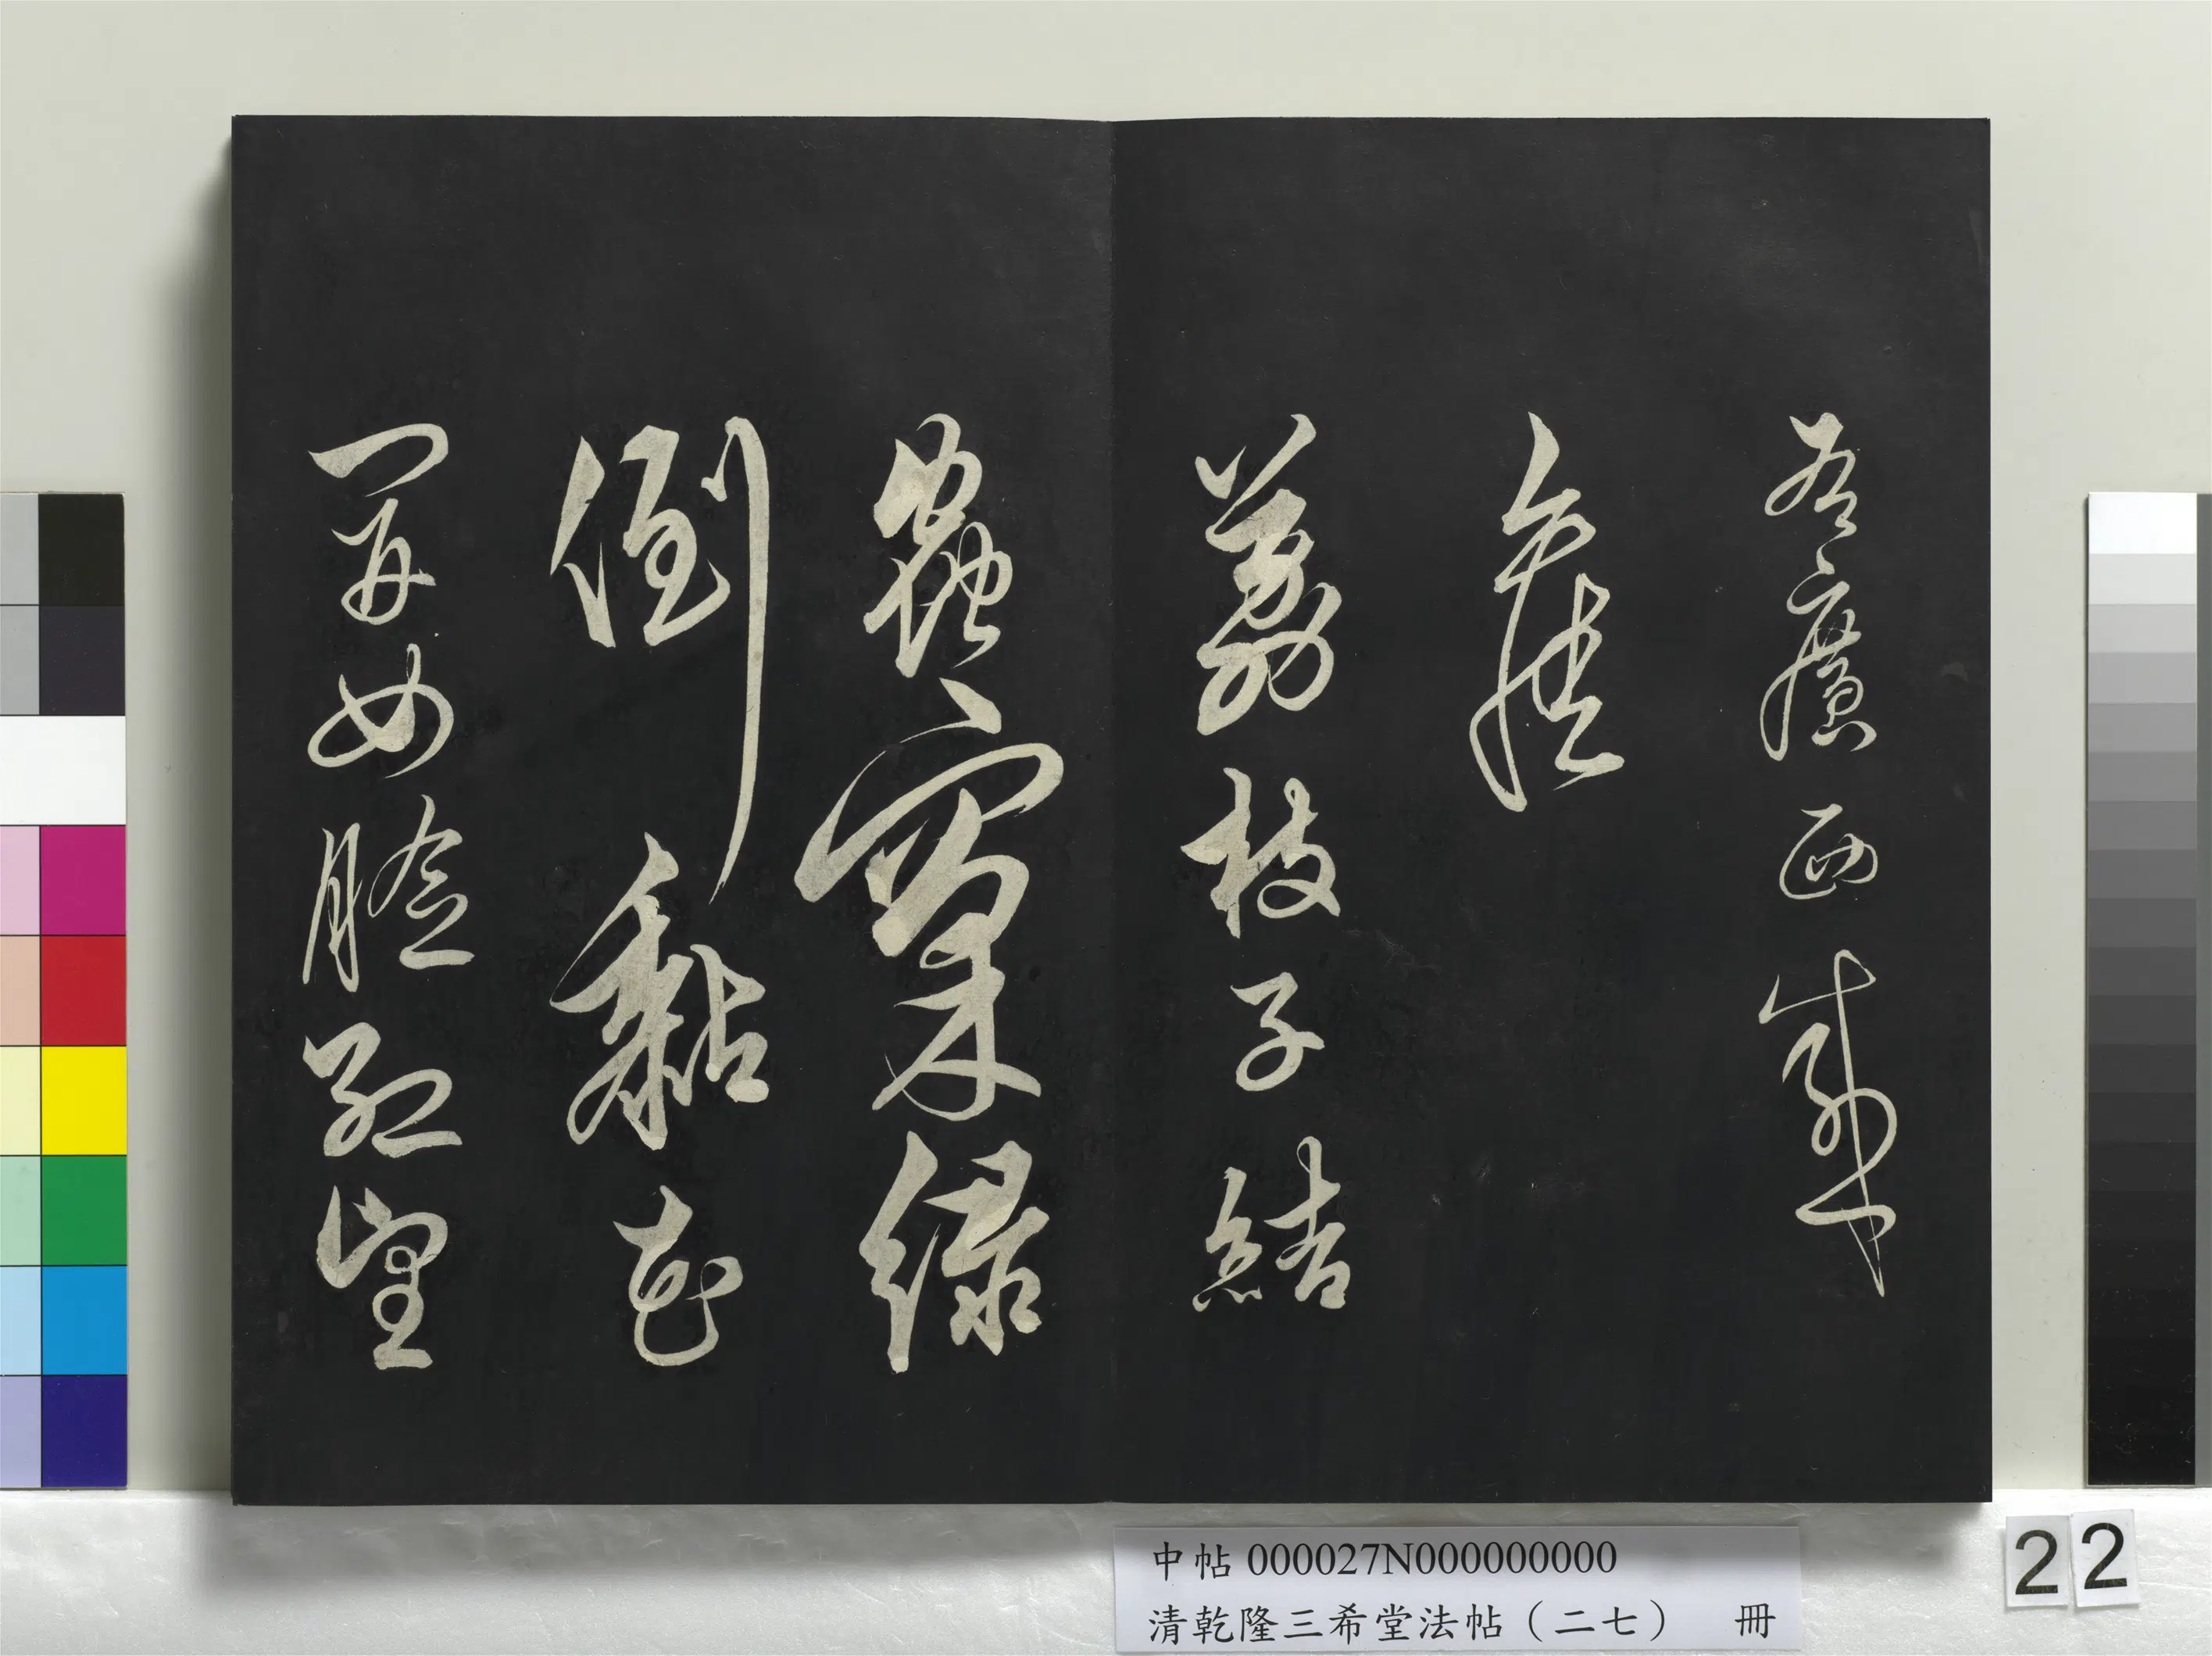 廣西
荔枝子結
蟲窠綠
倒黏花
開女臉紅望
中帖 000027N000000000
清乾隆三希堂法帖（二七） 冊
22